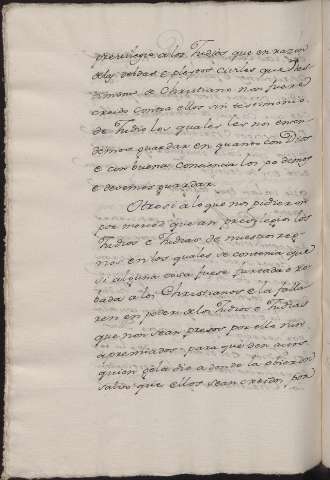 previlegio a los Judios que en razon
de las deudas e pleytos civiles que Tes-
timonio de Christiano non fuere
creido contra ellos sin testimonio
de Judio los quales les non enten-
demos guardar en quanto con Dios
e con buena conciencia los podemos
e devemos guardar.
Otrosi a lo que nos pidieron
por merced que an previlegios los
Judios e Judias de nuestros reg-
nos en los quales se contenia que
si alguna cosa fuere furtada o ro-
bada a los Christianos e la falla-
ren en poder de los Judios e Judias
que non sean presos por ello nin
apremiados para que den actor
quien gela dio a donde la obieron
salvo que ellos sean creidos por